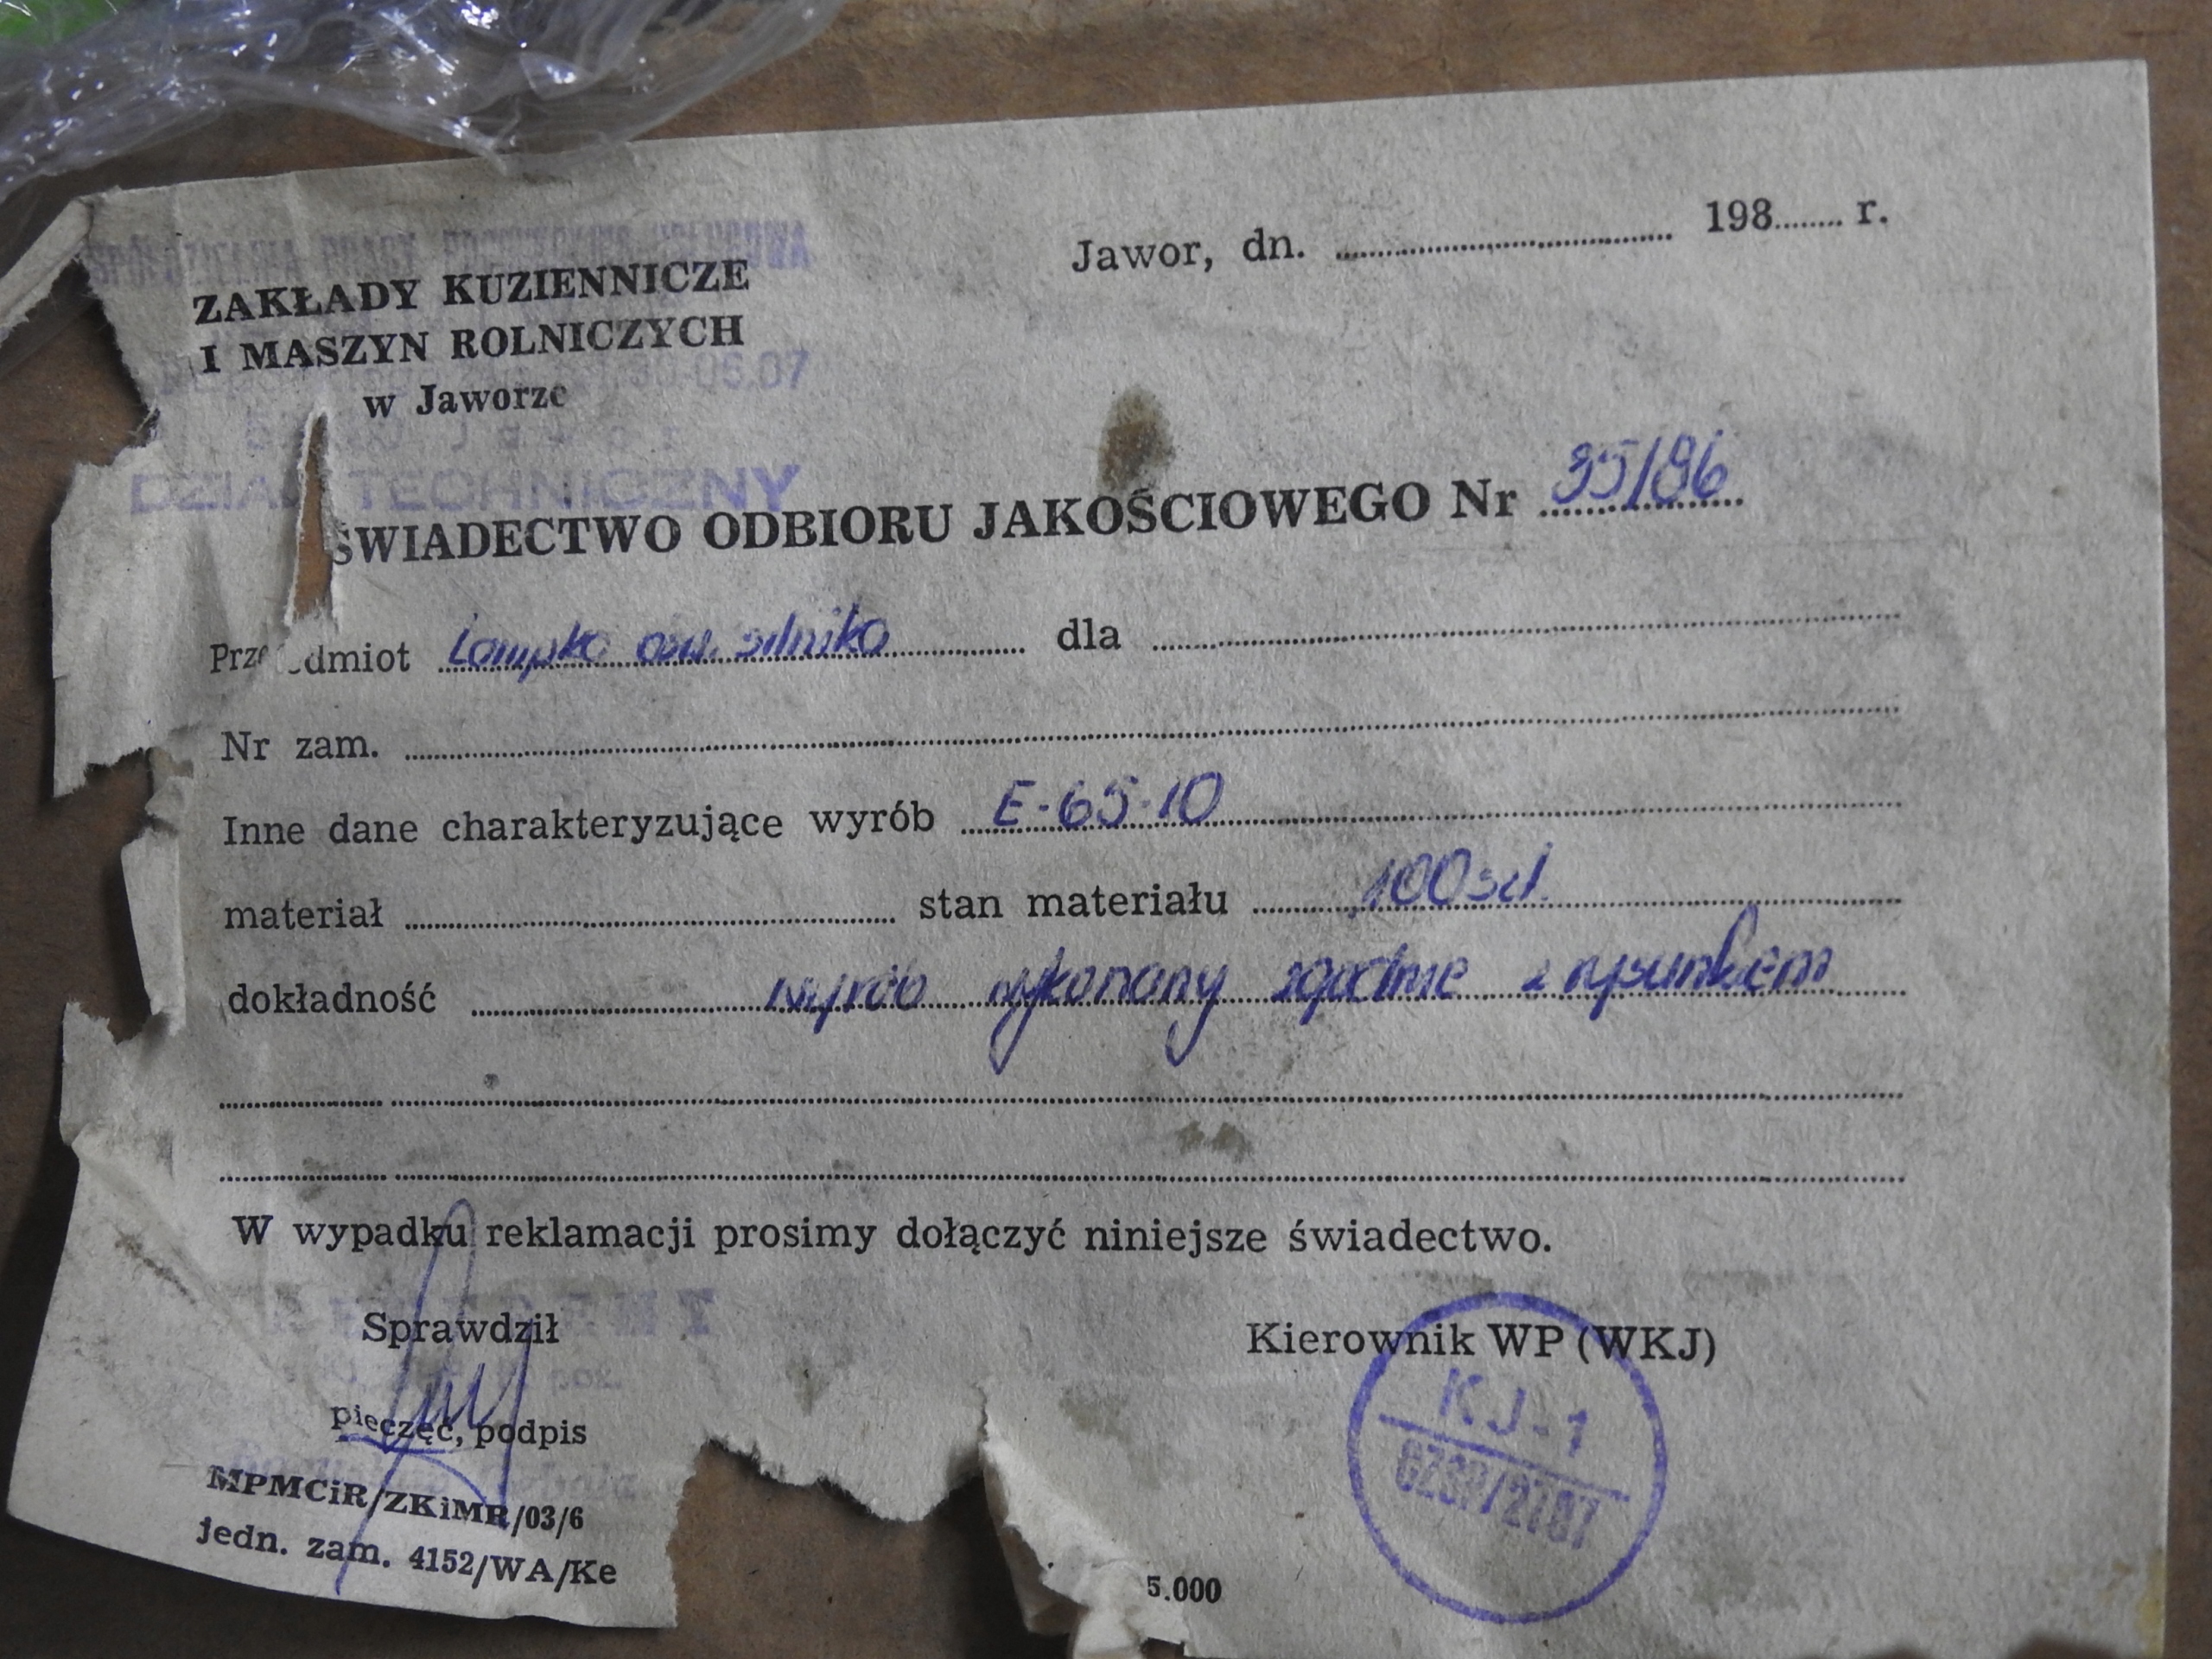 Jawor, dn. ........ 198...... r.
ZAKŁADY KUZIENNICZE
I MASZYN ROLNICZYCH
w Jaworze
DZIAŁ TECHNICZNY
ŚWIADECTWO ODBIORU JAKOŚCIOWEGO Nr 35/86
Przedmiot Lampka osw. silnika dla
Nr zam.
Inne dane charakteryzujące wyrób E-65-10
materiał ........ stan materiału 100 szt.
dokładność wyrób wykonany zgodnie z rysunkiem
W wypadku reklamacji prosimy dołączyć niniejsze świadectwo.
Sprawdził
Kierownik WP (WKJ)
KJ-1
pieczęć, podpis
MPMCiR/ZKiMR/03/6
jedn. zam. 4152/WA/Ke
5.000